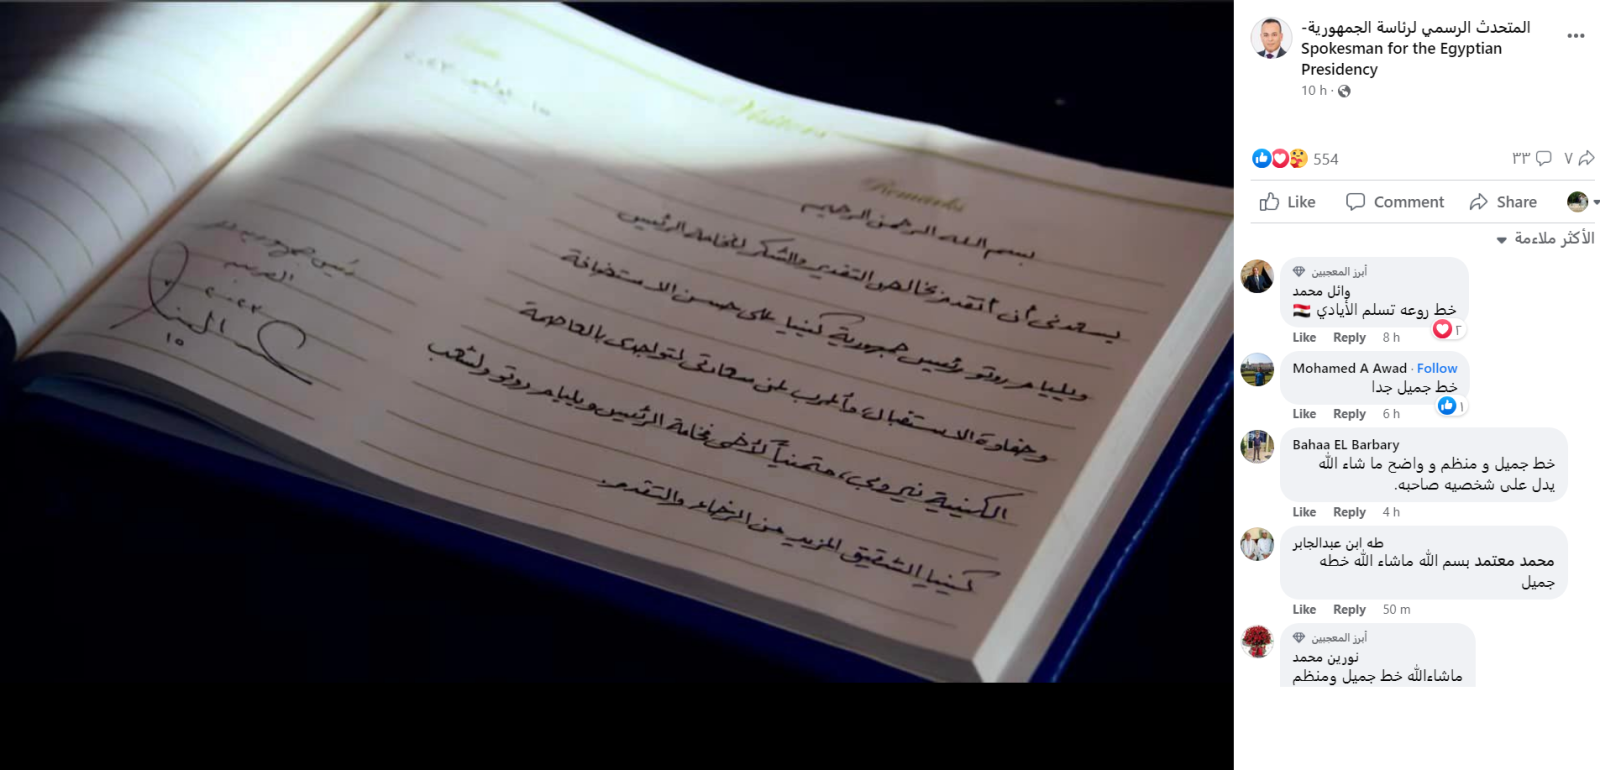 ١٥ يوليو ٢٠٢٣
Visitors
Remarks
بسم الله الرحمن الرحيم
يسعدنى أن أتقدم بخالص التقدير والشكر لفخامة الرئيس
ويليام روتو رئيس جمهورية كينيا على حسن الاستضافة
وحفاوة الاستقبال، وأعرب عن سعادتى لتواجدى بالعاصمة
الكينية نيروبى، متمنياً لأخى فخامة الرئيس ويليام روتو ولشعب
كينيا الشقيق المزيد من الرخاء والتقدم.
رئيس جمهورية مصر
العربية
٢٠٢٣
١٥
المتحدث الرسمي لرئاسة الجمهورية-
Spokesman for the Egyptian
Presidency
10 h ·
554
٣٣
٧
Like
Comment
Share
الأكثر ملاءمة
أبرز المعجبين
وائل محمد
خط روعه تسلم الأيادي 🇪🇬
٢
Like Reply 8 h
Mohamed A Awad · Follow
خط جميل جدا
١
Like Reply 6 h
Bahaa EL Barbary
خط جميل و منظم و واضح ما شاء الله
يدل على شخصيه صاحبه.
Like Reply 4 h
طه ابن عبدالجابر
محمد معتمد بسم الله ماشاء الله خطه
جميل
Like Reply 50 m
أبرز المعجبين
نورين محمد
ماشاءالله خط جميل ومنظم